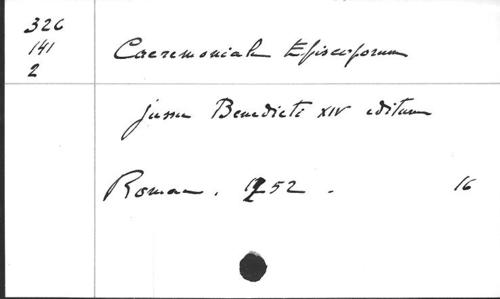 326
141
2
Caeremoniale Episcoporum
jussu Benedicti XIV editum
Romae. 1752. 16